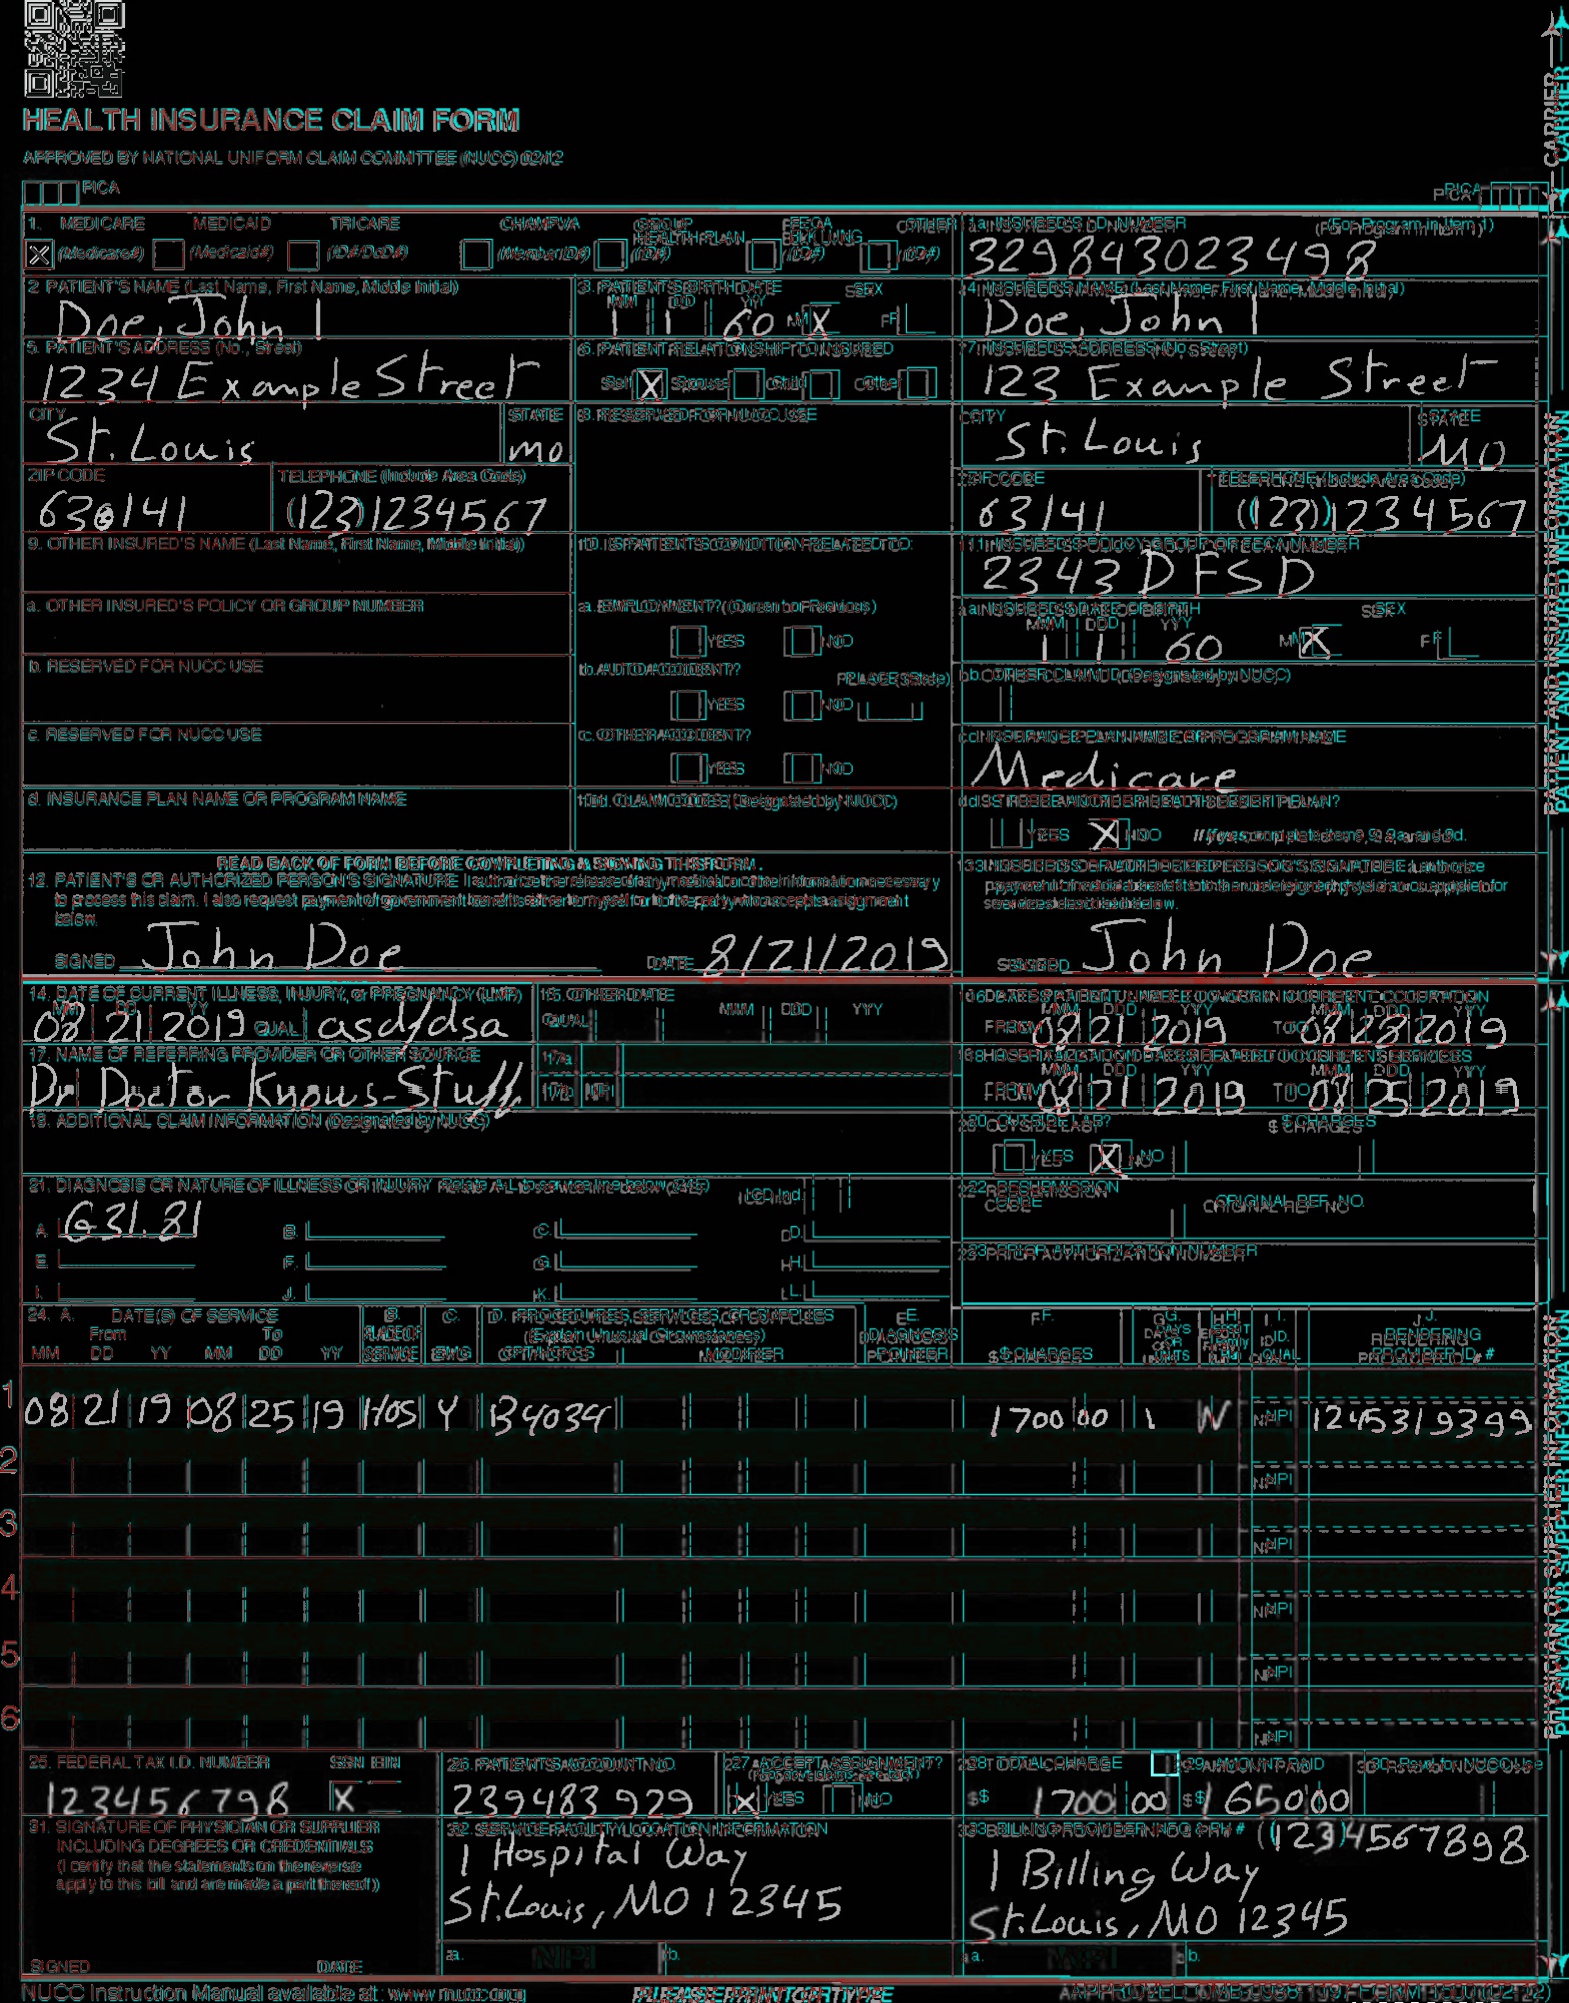 HEALTH INSURANCE CLAIM FORM
APPROVED BY NATIONAL UNIFORM CLAIM COMMITTEE (NUCC) 02/12
PICA
PICA
CARRIER
1. MEDICARE MEDICAID TRICARE CHAMPVA GROUP HEALTH PLAN FECA BLK LUNG OTHER
X (Medicare#) (Medicaid#) (ID#/DoD#) (Member ID#) (ID#) (ID#) (ID#)
1a. INSURED'S I.D. NUMBER (For Program in Item 1)
329843023498
2. PATIENT'S NAME (Last Name, First Name, Middle Initial)
Doe, John I
3. PATIENT'S BIRTH DATE SEX
MM DD YY
1 1 60 M X F
4. INSURED'S NAME (Last Name, First Name, Middle Initial)
Doe, John I
5. PATIENT'S ADDRESS (No., Street)
1234 Example Street
6. PATIENT RELATIONSHIP TO INSURED
Self X Spouse Child Other
7. INSURED'S ADDRESS (No., Street)
123 Example Street
CITY STATE
St. Louis MO
8. RESERVED FOR NUCC USE
CITY STATE
St. Louis MO
ZIP CODE TELEPHONE (Include Area Code)
630141 (123) 1234567
ZIP CODE TELEPHONE (Include Area Code)
63141 (123) 1234567
9. OTHER INSURED'S NAME (Last Name, First Name, Middle Initial)
10. IS PATIENT'S CONDITION RELATED TO:
11. INSURED'S POLICY GROUP OR FECA NUMBER
2343DFSD
a. OTHER INSURED'S POLICY OR GROUP NUMBER
a. EMPLOYMENT? (Current or Previous)
YES NO
a. INSURED'S DATE OF BIRTH SEX
MM DD YY
1 1 60 M X F
b. RESERVED FOR NUCC USE
b. AUTO ACCIDENT? PLACE (State)
YES NO
b. OTHER CLAIM ID (Designated by NUCC)
c. RESERVED FOR NUCC USE
c. OTHER ACCIDENT?
YES NO
c. INSURANCE PLAN NAME OR PROGRAM NAME
Medicare
d. INSURANCE PLAN NAME OR PROGRAM NAME
10d. CLAIM CODES (Designated by NUCC)
d. IS THERE ANOTHER HEALTH BENEFIT PLAN?
YES X NO If yes, complete items 9, 9a, and 9d.
READ BACK OF FORM BEFORE COMPLETING & SIGNING THIS FORM.
12. PATIENT'S OR AUTHORIZED PERSON'S SIGNATURE I authorize the release of any medical or other information necessary
to process this claim. I also request payment of government benefits either to myself or to the party who accepts assignment
below.
SIGNED John Doe DATE 8/21/2019
13. INSURED'S OR AUTHORIZED PERSON'S SIGNATURE I authorize
payment of medical benefits to the undersigned physician or supplier for
services described below.
SIGNED John Doe
PATIENT AND INSURED INFORMATION
14. DATE OF CURRENT ILLNESS, INJURY, or PREGNANCY (LMP)
MM DD YY
08 21 2019 QUAL. asdfdsa
15. OTHER DATE
QUAL. MM DD YY
16. DATES PATIENT UNABLE TO WORK IN CURRENT OCCUPATION
MM DD YY MM DD YY
FROM 08 21 2019 TO 08 23 2019
17. NAME OF REFERRING PROVIDER OR OTHER SOURCE
Dr Doctor Knows-Stuff
17a.
17b. NPI
18. HOSPITALIZATION DATES RELATED TO CURRENT SERVICES
MM DD YY MM DD YY
FROM 08 21 2019 TO 08 25 2019
19. ADDITIONAL CLAIM INFORMATION (Designated by NUCC)
20. OUTSIDE LAB? $ CHARGES
YES X NO
21. DIAGNOSIS OR NATURE OF ILLNESS OR INJURY Relate A-L to service line below (24E) ICD Ind.
A. G31.81 B. C. D.
E. F. G. H.
I. J. K. L.
22. RESUBMISSION CODE ORIGINAL REF. NO.
23. PRIOR AUTHORIZATION NUMBER
24. A. DATE(S) OF SERVICE B. C. D. PROCEDURES, SERVICES, OR SUPPLIES E. F. G. H. I. J.
From To PLACE OF (Explain Unusual Circumstances) DIAGNOSIS DAYS OR ID. RENDERING
MM DD YY MM DD YY SERVICE EMG CPT/HCPCS MODIFIER POINTER $ CHARGES UNITS QUAL. PROVIDER ID. #
1 08 21 19 08 25 19 HOS Y B4034 1700 00 1 N NPI 1245319399
2 NPI
3 NPI
4 NPI
5 NPI
6 NPI
PHYSICIAN OR SUPPLIER INFORMATION
25. FEDERAL TAX I.D. NUMBER SSN EIN
123456798 X
26. PATIENT'S ACCOUNT NO.
239483929
27. ACCEPT ASSIGNMENT?
X YES NO
28. TOTAL CHARGE
$ 1700 00
29. AMOUNT PAID
$ 1650 00
30. Rsvd for NUCC Use
31. SIGNATURE OF PHYSICIAN OR SUPPLIER
INCLUDING DEGREES OR CREDENTIALS
(I certify that the statements on the reverse
apply to this bill and are made a part thereof.)
SIGNED DATE
32. SERVICE FACILITY LOCATION INFORMATION
1 Hospital Way
St. Louis, MO 12345
a. NPI b.
33. BILLING PROVIDER INFO & PH # (123) 4567898
1 Billing Way
St. Louis, MO 12345
a. NPI b.
NUCC Instruction Manual available at: www.nucc.org
PLEASE PRINT OR TYPE